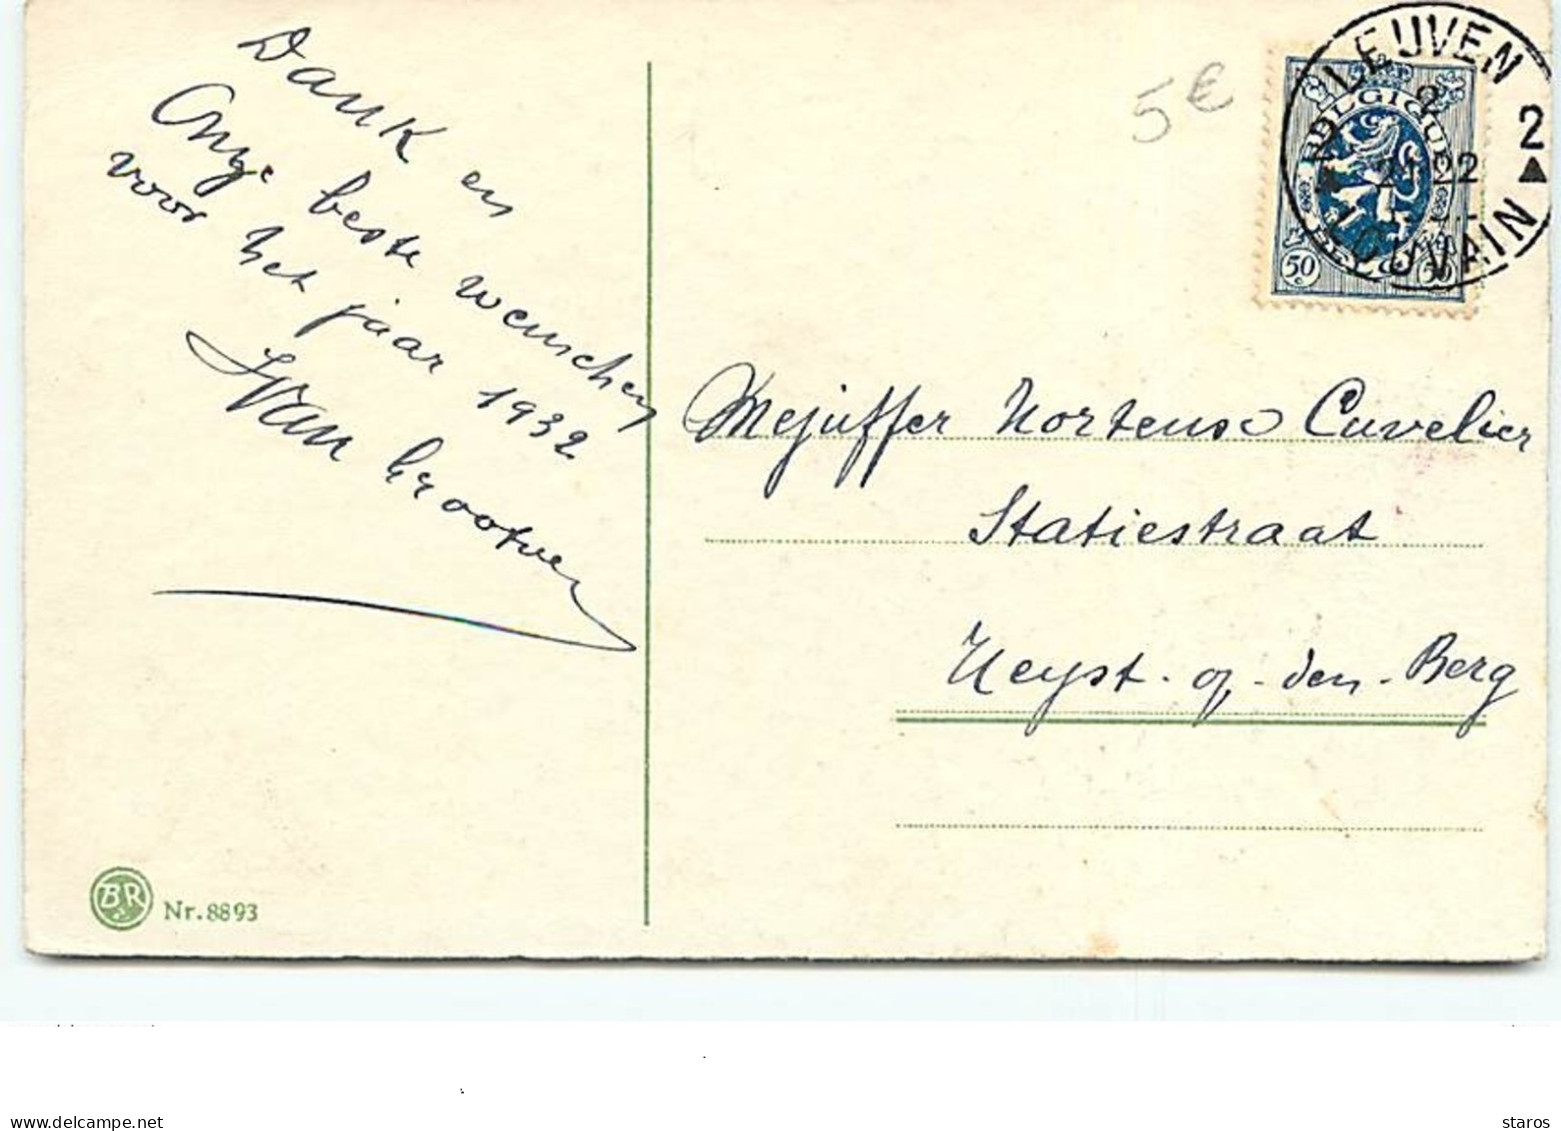 Dank en
Onze beste wenschen
voor het jaar 1932
J Van Grootven
BR
Nr. 8893
5 €
LEUVEN 2
2
22
LOUVAIN
BELGIQUE
BELGIË
50 c 50
Mejuffer Hortense Cuvelier
Statiestraat
Heyst-op-den-Berg
www.delcampe.net
staros